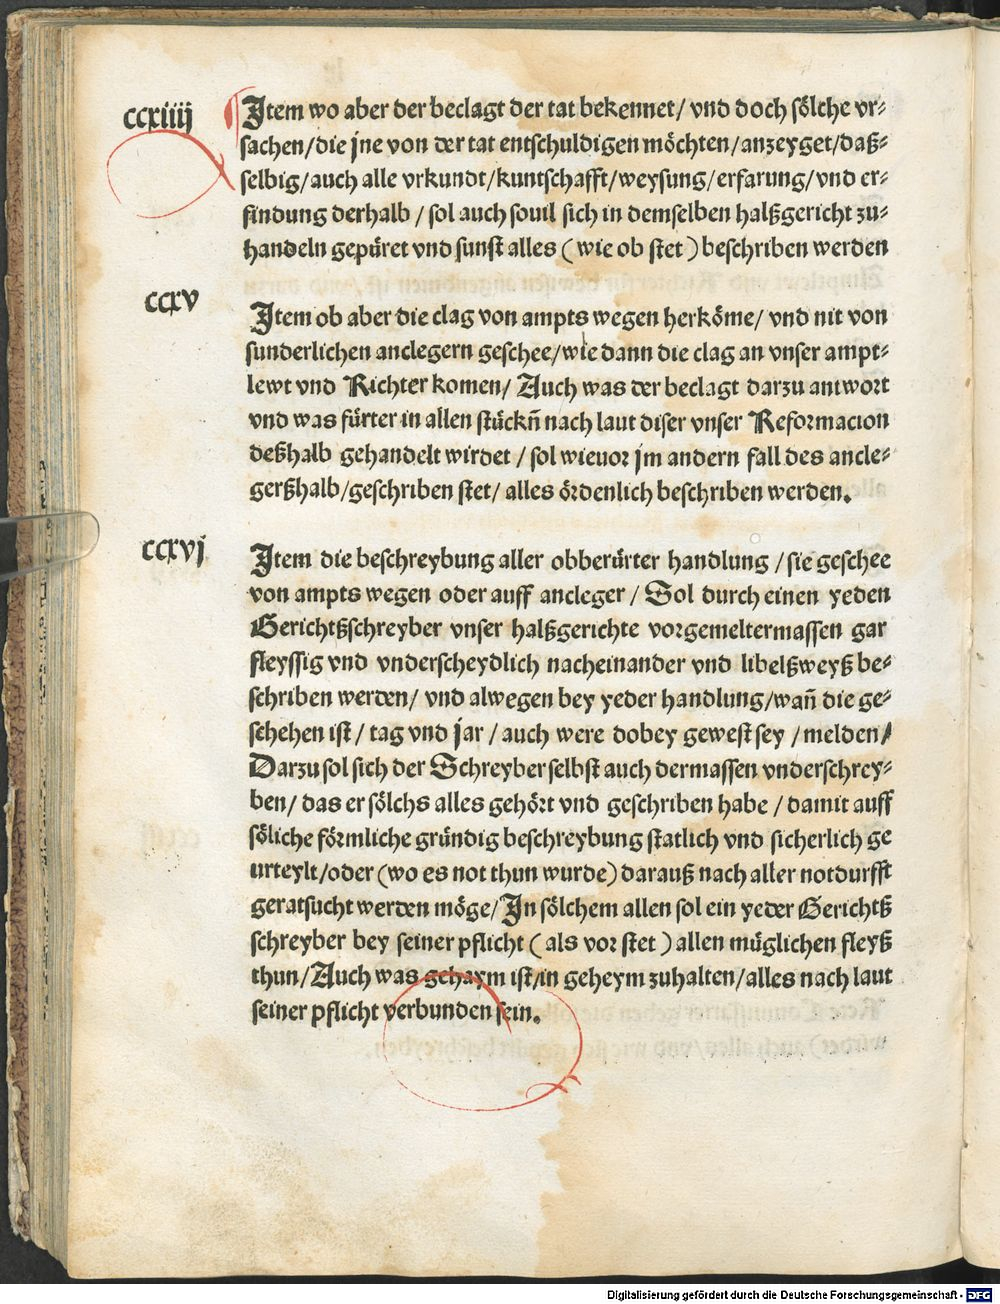 ccxiiij
Item wo aber der beclagt der tat bekennet/ vnd doch sölche vr⸗
sachen/die jne von der tat entschuldigen möchten/anzeyget/daß⸗
selbig/auch alle vrkundt/kuntschafft/weysung/erfarung/vnd er⸗
findung derhalb / sol auch souil sich in demselben halßgericht zu⸗
handeln gepüret vnd sunst alles ( wie ob stet ) beschriben werden
ccxv
Item ob aber die clag von ampts wegen herköme/ vnd nit von
sunderlichen anclegern geschee/wie dann die clag an vnser ampt⸗
lewt vnd Richter komen/ Auch was der beclagt darzu antwort
vnd was fürter in allen stückñ nach laut diser vnser Reformacion
deßhalb gehandelt wirdet / sol wieuor jm andern fall des ancle⸗
gerßhalb/geschriben stet/ alles ördenlich beschriben werden.
ccxvj
Item die beschreybung aller obberürter handlung /sie geschee
von ampts wegen oder auff ancleger / Sol durch einen yeden
Gerichtßschreyber vnser halßgerichte vorgemeltermassen gar
fleyssig vnd vnderscheydlich nacheinander vnd libelßweyß be⸗
schriben werden/ vnd alwegen bey yeder handlung/wañ die ge⸗
schehen ist / tag vnd jar / auch were dobey gewest sey /melden/
Darzu sol sich der Schreyber selbst auch dermassen vnderschrey⸗
ben/ das er sölchs alles gehört vnd geschriben habe / damit auff
söliche förmliche gründig beschreybung statlich vnd sicherlich ge
urteylt/oder (wo es not thun wurde) darauß nach aller notdurfft
geratsucht werden möge/ In sölchem allen sol ein yeder Gerichtß
schreyber bey seiner pflicht ( als vor stet ) allen müglichen fleyß
thun/ Auch was gehaym ist/in geheym zuhalten/alles nach laut
seiner pflicht verbunden sein.
Digitalisierung gefördert durch die Deutsche Forschungsgemeinschaft - DFG